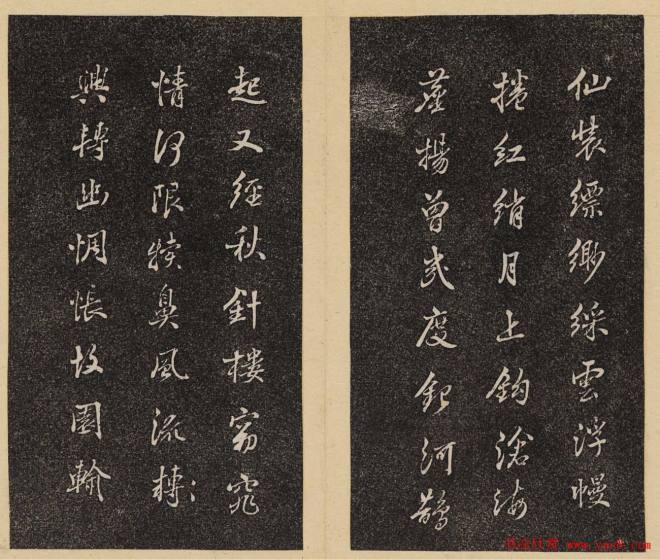 仙裝縹緲綵雲浮幔
捲紅綃月上鈎滄海
塵揚曾幾度銀河鵲
起又經秋針樓窈窕
情何限犢鼻風流轉
興轉幽惆悵故園輪